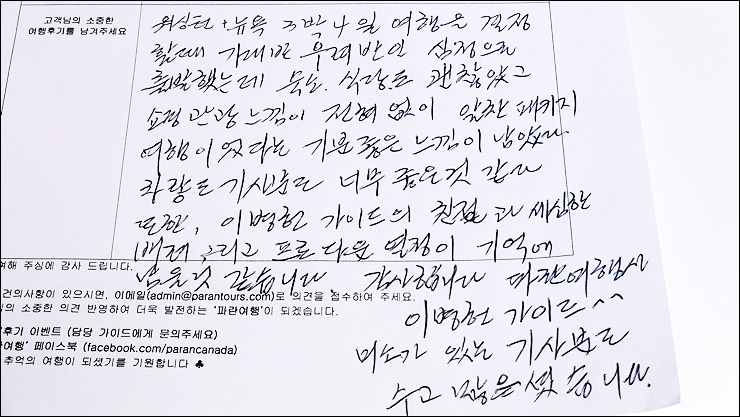 고객님의 소중한
여행후기를 남겨주세요
워싱턴 + 뉴욕 3박 4일 여행을 결정
할때 기대반 우려반인 심정으로
출발했는데 숙소, 식당도 괜찮았고
쇼핑 관광 느낌이 전혀 없이 알찬 패키지
여행이었다는 기분 좋은 느낌이 남았다.
차량도 기사분도 너무 좋은것 같다
또한, 이병헌 가이드의 친절과 세심한
배려 그리고 프로다운 열정이 기억에
남을것 같습니다. 감사합니다 파란여행사
이병헌 가이드^^
미소가 있는 기사분도
수고 많으셨습니다.
여해 주심에 감사 드립니다.
건의사항이 있으시면, 이메일(admin@parantours.com)로 의견을 접수하여 주세요.
의 소중한 의견 반영하여 더욱 발전하는 '파란여행'이 되겠습니다.
후기 이벤트 (담당 가이드에게 문의주세요)
여행' 페이스북 (facebook.com/parancanada)
추억의 여행이 되셨기를 기원합니다 ♣